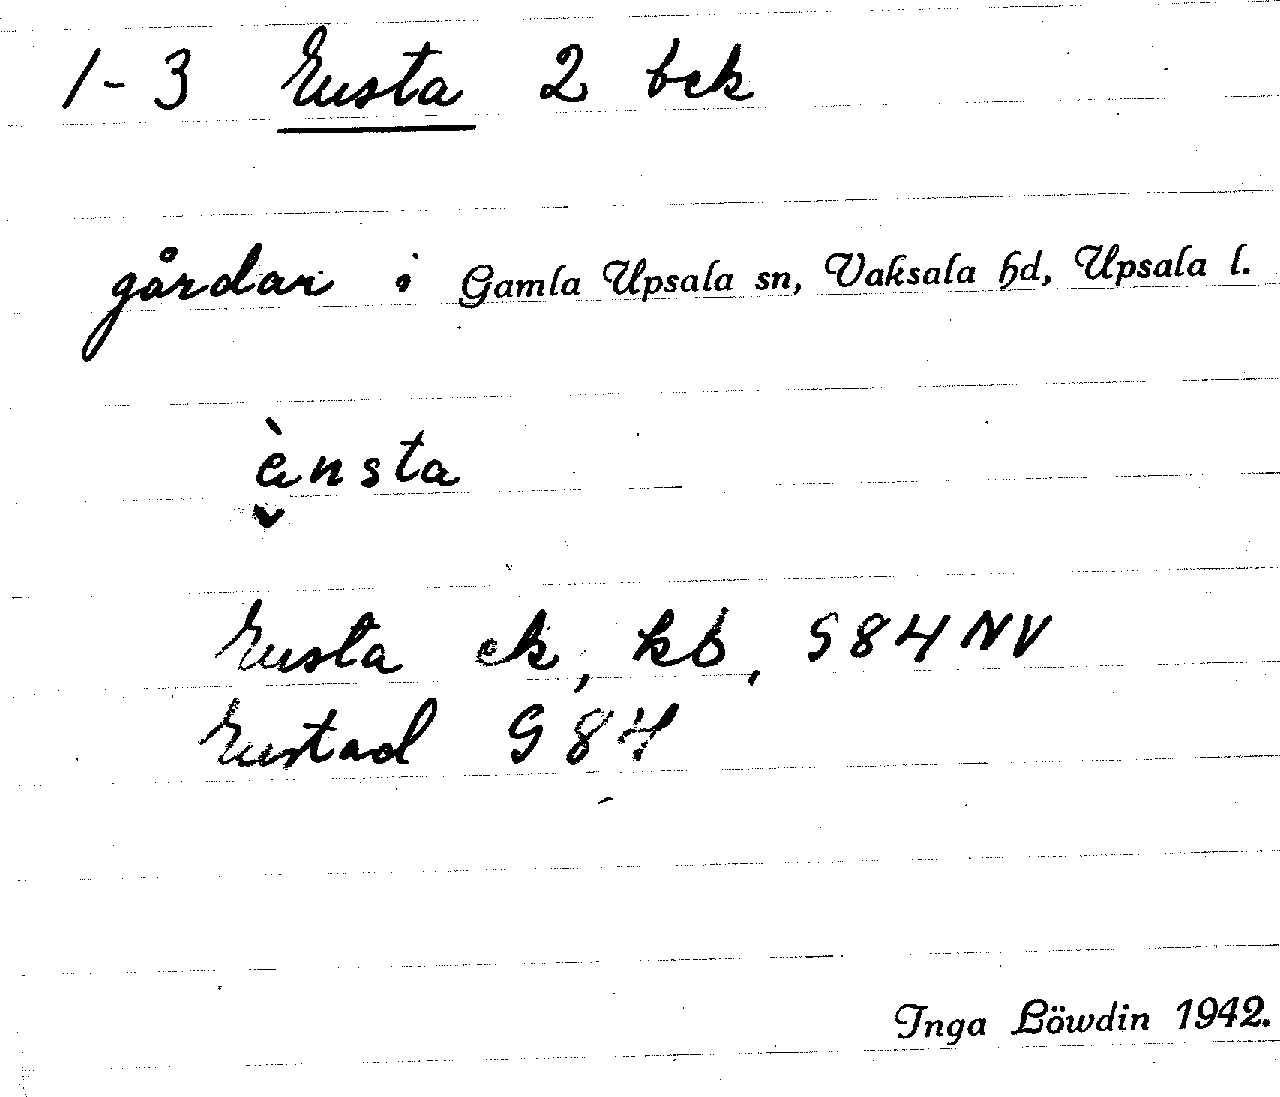 1-3 Ensta 2 bek
gårdar i Gamla Upsala sn, Vaksala hd, Upsala l.
ènsta
Ensta ek, kb, S84NV
Enstad G84
Inga Löwdin 1942.